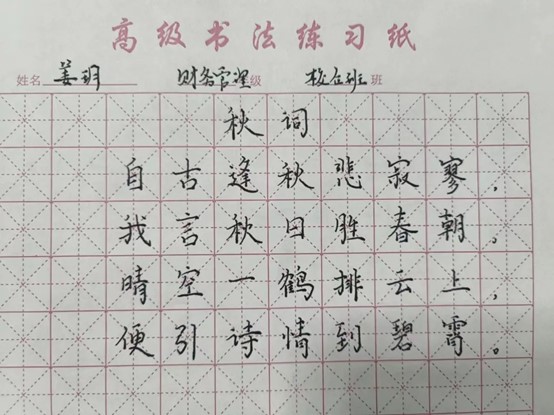 高级书法练习纸
姓名 姜玥 财务管理级 班
秋词
自古逢秋悲寂寥，
我言秋日胜春朝，
晴空一鹤排云上，
便引诗情到碧霄。